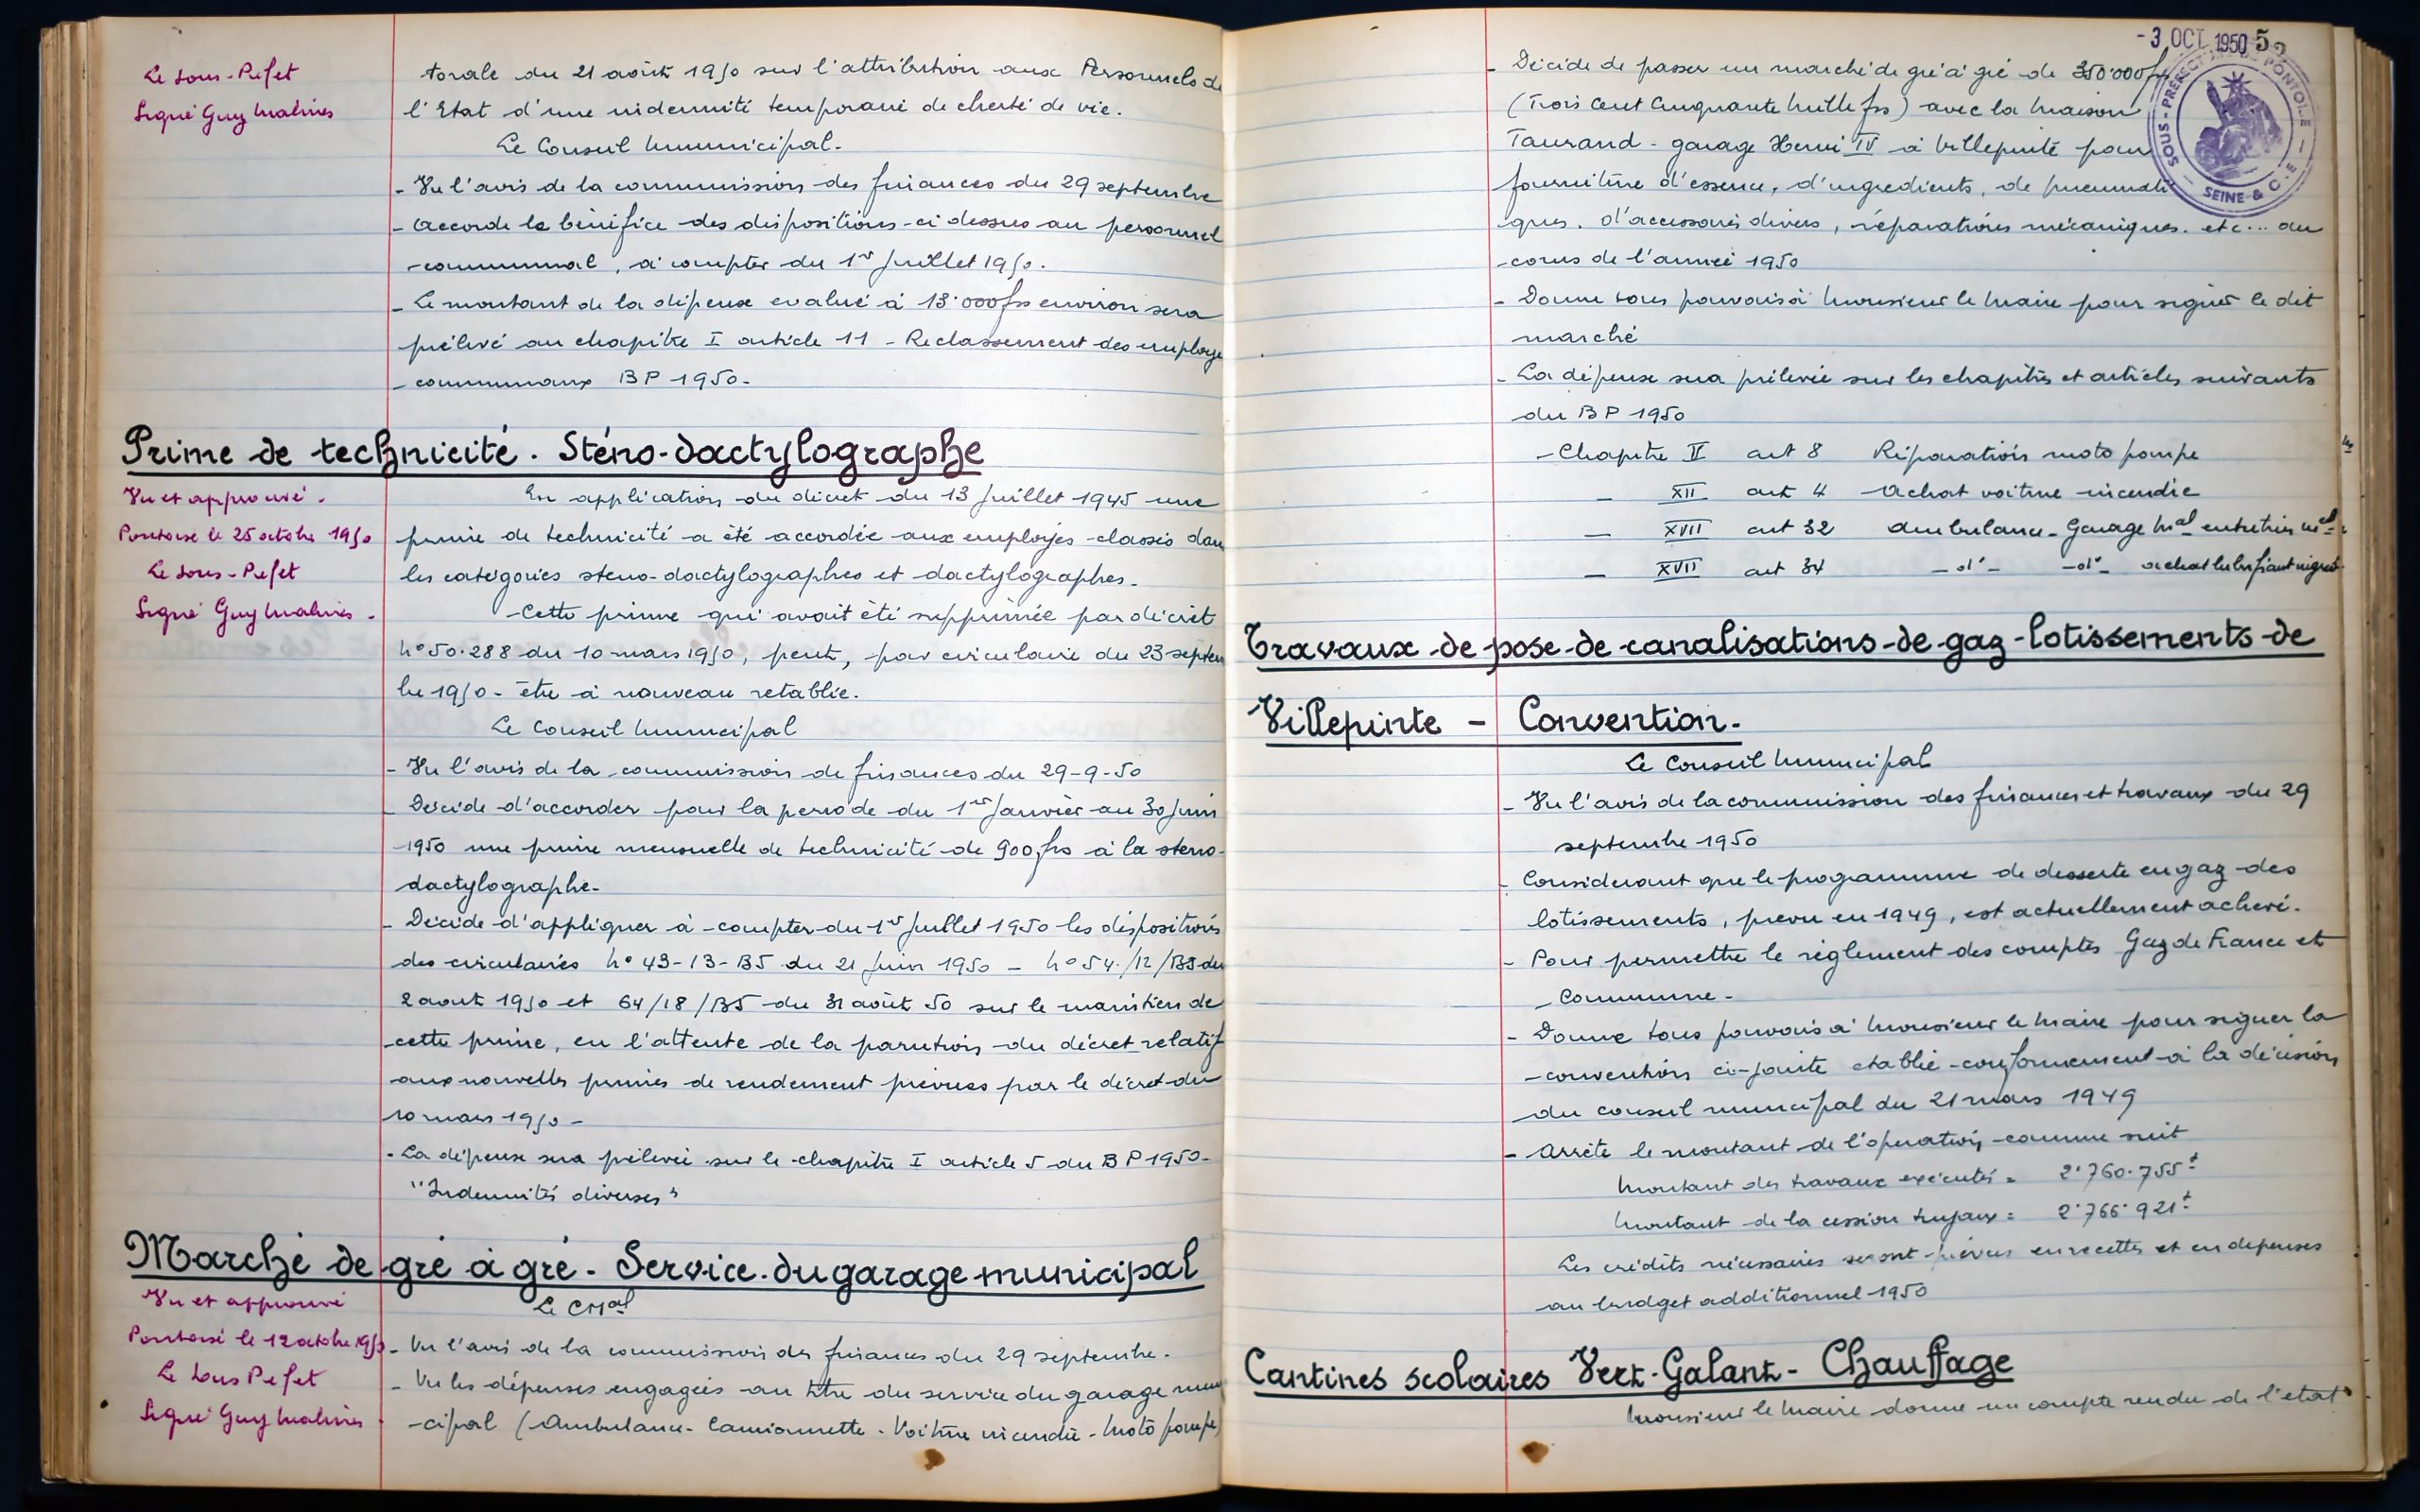 Le Sous-Préfet
Signé Guy Malines
torale du 21 août 1950 sur l'attribution aux Personnels de
l'Etat d'une indemnité temporaire de cherté de vie.
Le Conseil Municipal.
- Vu l'avis de la commission des finances du 29 septembre
- accorde le bénéfice des dispositions ci dessus au personnel
communal, à compter du 1er Juillet 1950.
- Le montant de la dépense evalué à 13.000 frs environ sera
prélevé au chapitre I article 11 - Reclassement des employé
communaux BP 1950.
Prime de technicité. Sténo-dactylographe
Vu et approuvé.
Pontoise le 25 octobre 1950
Le Sous-Préfet
Signé Guy Malines.
En application du décret du 13 Juillet 1945 une
prime de technicité a été accordée aux employés classés dans
les catégories sténo-dactylographes et dactylographes.
Cette prime qui avait été supprimée par décret
N° 50.288 du 10 mars 1950, peut, par circulaire du 23 septem
bre 1950 - être à nouveau retablie.
Le Conseil Municipal
- Vu l'avis de la commission de finances du 29-9-50
- Décide d'accorder pour la période du 1er Janvier au 30 Juin
1950 une prime mensuelle de technicité de 900 frs à la steno-
dactylographe.
- Décide d'appliquer à compter du 1er Juillet 1950 les dispositions
des circulaires N° 43-13-B5 du 21 Juin 1950 - N° 54./12/B5 du
2 aout 1950 et 64/18/B5 du 31 août 50 sur le maintien de
cette prime, en l'attente de la parution du décret relatif
aux nouvelles primes de rendement prévues par le décret du
10 mars 1950 -
- La dépense sera prélevée sur le chapitre I article 5 du BP 1950.
"Indemnités diverses"
Marché de gré à gré - Service du garage municipal
Vu et approuvé
Pontoise le 12 octobre 1950
Le Sous Préfet
Signé Guy Malines
Le CMal
- Vu l'avis de la commission des finances du 29 septembre.
- Vu les dépenses engagées au titre du service du garage muni
-cipal (Ambulance - Camionnette - Voiture incendie - Moto pompe)
- 3 OCT 1950
SOUS-PRÉFECTURE DE PONTOISE
SEINE & O
- Décide de passer un marché de gré à gré de 350.000 frs
(Trois cent cinquante mille frs) avec la Maison
Taurand - garage Henri IV à Villepinte pour
fourniture d'essence, d'ingredients, de pneumati
ques, d'accessoires divers, réparations mécaniques, etc... au
cours de l'année 1950
- Donne tous pouvoirs à Monsieur le Maire pour signer le dit
marché
- La dépense sera prélevée sur les chapitres et articles suivants
du BP 1950
- Chapitre II art 8 Réparations moto pompe
- XII art 4 Achat voiture incendie
- XVII art 32 Ambulance - Garage Mal entretien
- XVII art 34 - d° - - d° - achat lubrifiant
Travaux de pose de canalisations de gaz - lotissements de
Villepinte - Convention.
Le Conseil Municipal
- Vu l'avis de la commission des finances et travaux du 29
septembre 1950
- Considerant que le programme de desserte en gaz des
lotissements, prévu en 1949, est actuellement achevé.
- Pour permettre le règlement des comptes Gaz de France et
Commune -
- Donne tous pouvoirs à Monsieur le Maire pour signer la
convention ci-jointe etablie conformement à la décision
du conseil municipal du 21 mars 1949
- Arrête le montant de l'operation comme suit
Montant des travaux exécutés = 2.760.755 f
Montant de la cession tuyaux = 2.766.921 f
Les crédits nécessaires seront prévus en recettes et en depenses
au budget additionnel 1950
Cantines scolaires Vert-Galant - Chauffage
Monsieur le Maire donne un compte rendu de l'etat